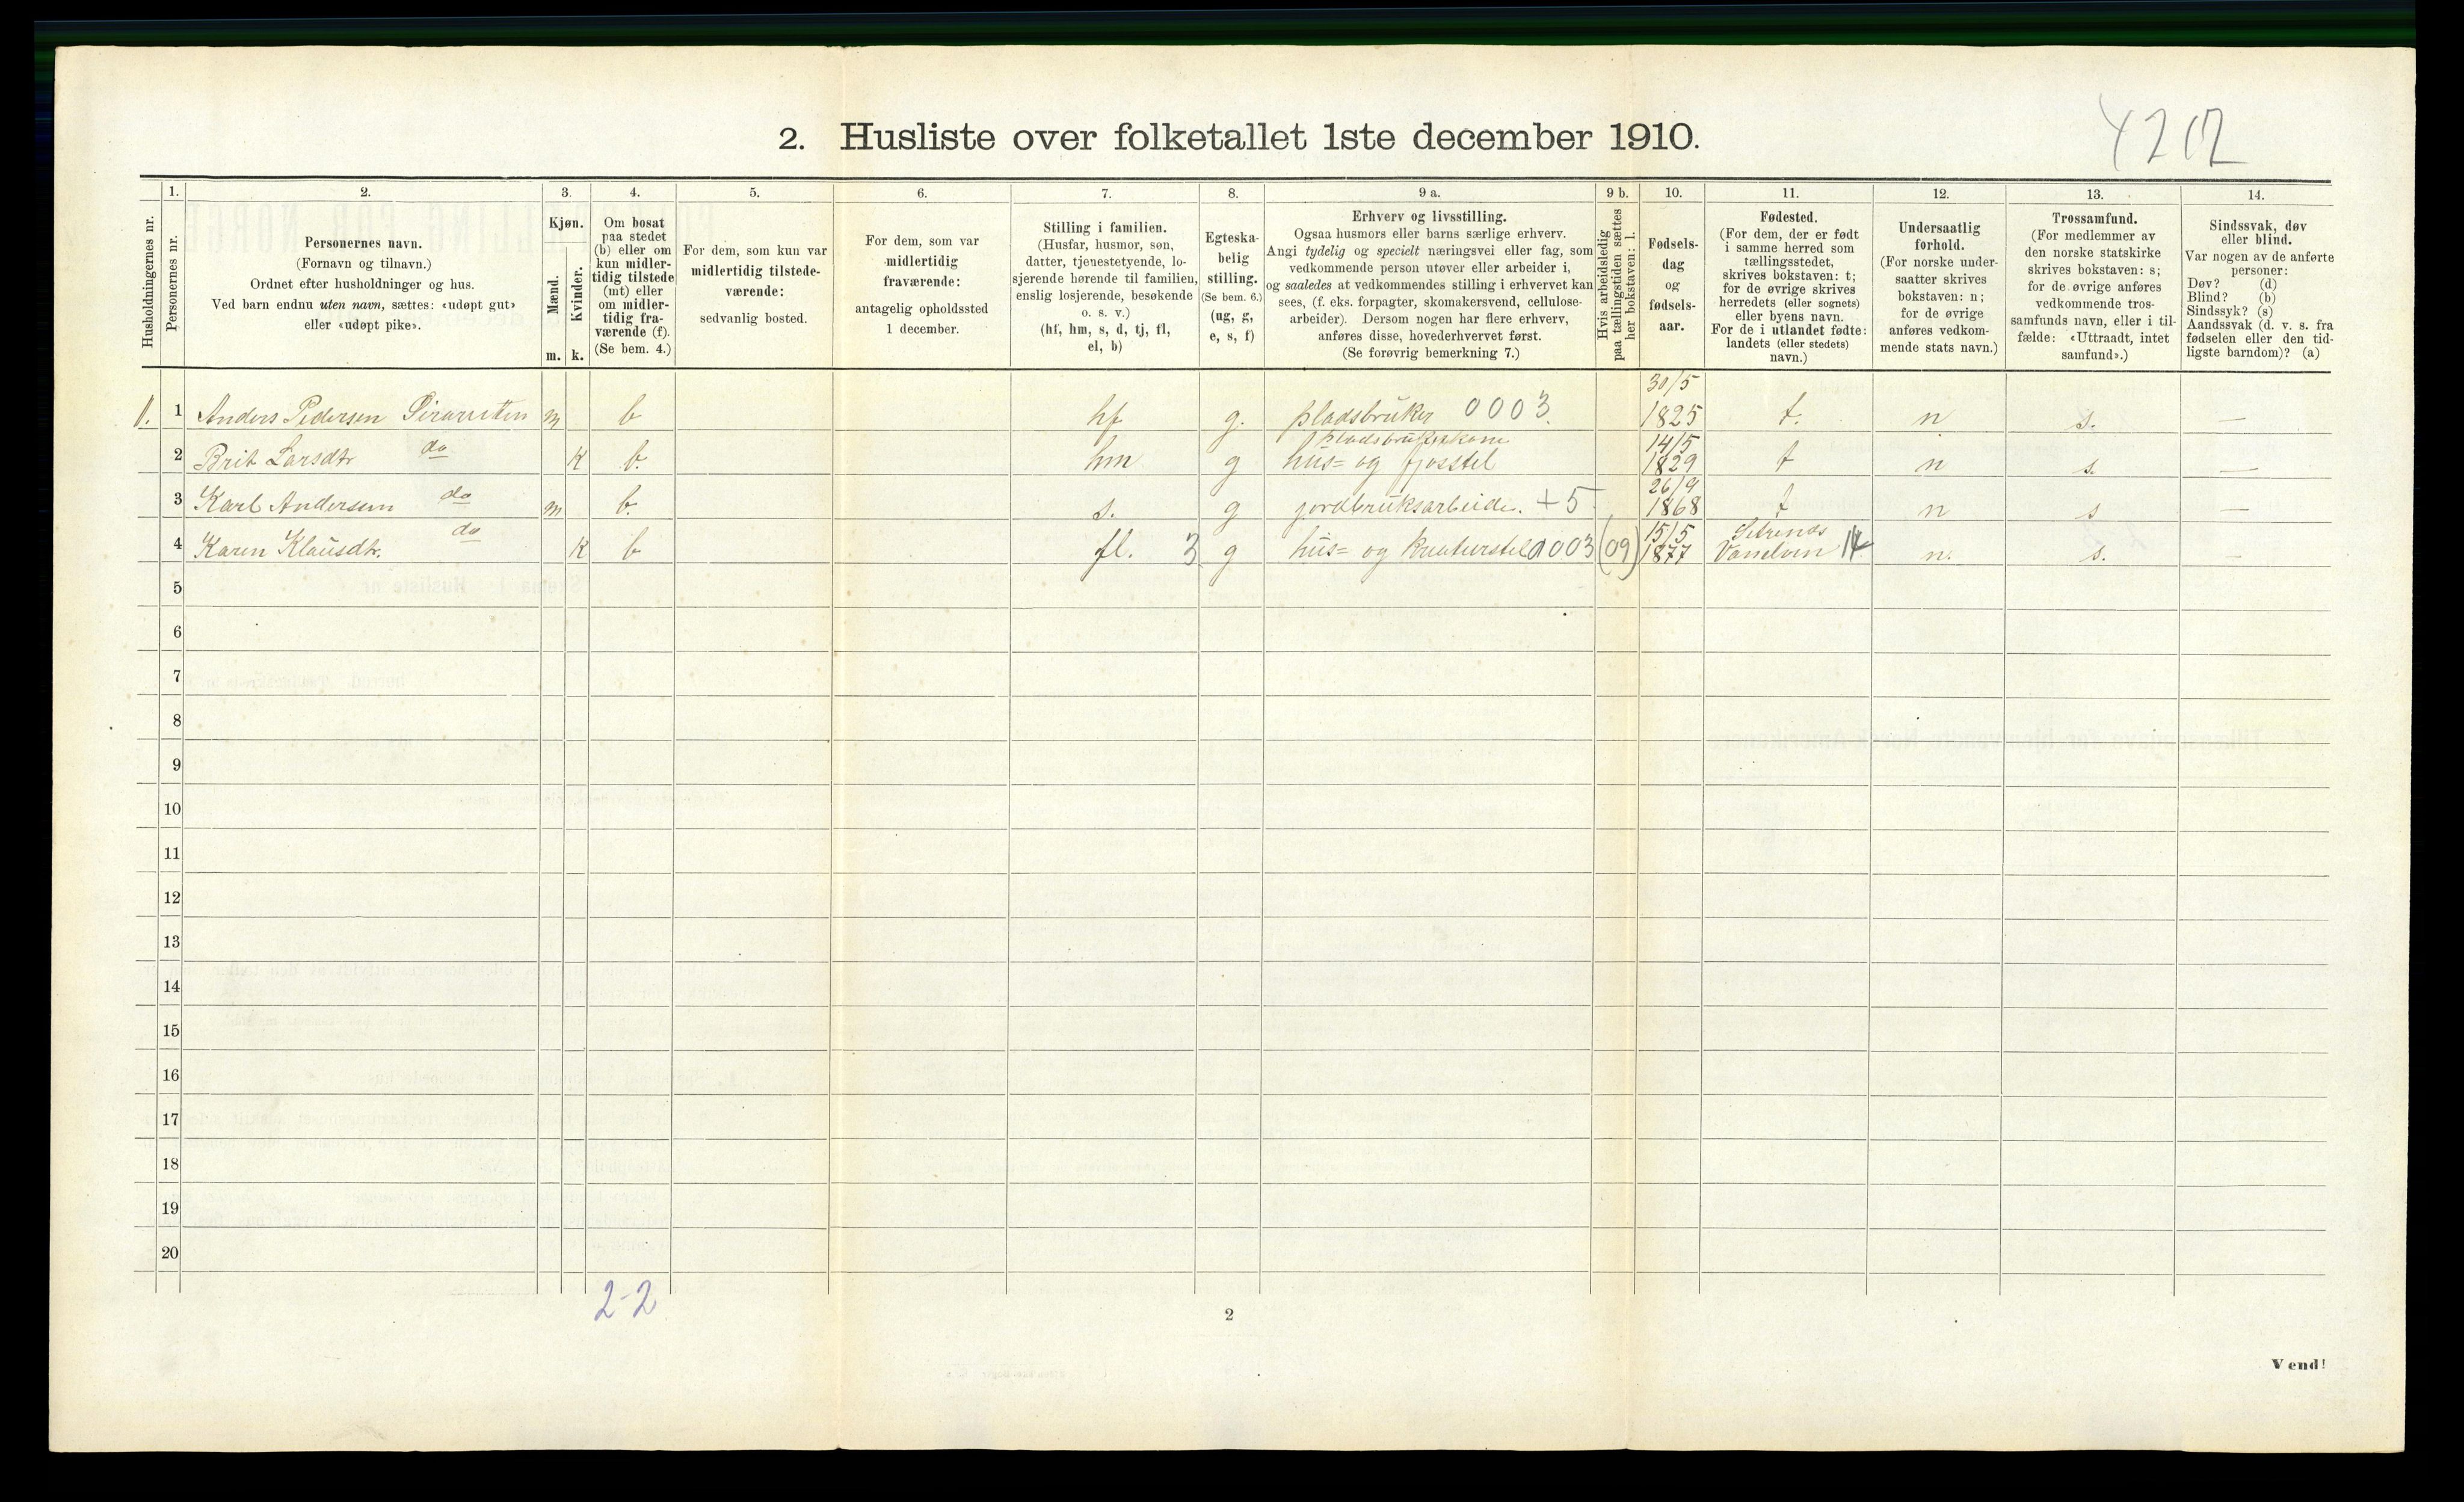 4212
2. Husliste over folketallet 1ste december 1910.
Husholdningernes nr.
1.
Personernes nr.
2.
Personernes navn.
(Fornavn og tilnavn.)
Ordnet efter husholdninger og hus.
Ved barn endnu uten navn, sættes: «udøpt gut»
eller «udøpt pike».
3.
Kjøn.
Mænd.
Kvinder.
m. k.
4.
Om bosat
paa stedet
(b) eller om
kun midler-
tidig tilstede
(mt) eller
om midler-
tidig fra-
værende (f).
(Se bem. 4.)
5.
For dem, som kun var
midlertidig tilstede-
værende:
sedvanlig bosted.
6.
For dem, som var
midlertidig
fraværende:
antagelig opholdssted
1 december.
7.
Stilling i familien.
(Husfar, husmor, søn,
datter, tjenestetyende, lo-
sjerende hørende til familien,
enslig losjerende, besøkende
o. s. v.)
(hf, hm, s, d, tj, fl,
el, b)
8.
Egteska-
belig
stilling.
(Se bem. 6.)
(ug, g,
e, s, f)
9 a.
Erhverv og livsstilling.
Ogsaa husmors eller barns særlige erhverv.
Angi tydelig og specielt næringsvei eller fag, som
vedkommende person utøver eller arbeider i,
og saaledes at vedkommendes stilling i erhvervet kan
sees, (f. eks. forpagter, skomakersvend, cellulose-
arbeider). Dersom nogen har flere erhverv,
anføres disse, hovederhvervet først.
(Se forøvrig bemerkning 7.)
9 b.
Hvis arbeidsledig
paa tællingstiden sættes
her bokstaven: l.
10.
Fødsels-
dag
og
fødsels-
aar.
11.
Fødested.
(For dem, der er født
i samme herred som
tællingsstedet,
skrives bokstaven: t;
for de øvrige skrives
herredets (eller sognets)
eller byens navn.
For de i utlandet fødte:
landets (eller stedets)
navn.)
12.
Undersaatlig
forhold.
(For norske under-
saatter skrives
bokstaven: n;
for de øvrige
anføres vedkom-
mende stats navn.)
13.
Trossamfund.
(For medlemmer av
den norske statskirke
skrives bokstaven: s;
for de øvrige anføres
vedkommende tros-
samfunds navn, eller i til-
fælde: «Uttraadt, intet
samfund».)
14.
Sindssvak, døv
eller blind.
Var nogen av de anførte
personer:
Døv? (d)
Blind? (b)
Sindssyk? (s)
Aandssvak (d. v. s. fra
fødselen eller den tid-
ligste barndom)? (a)
1. 1 Anders Pedersen m b hf g. pladsbruker 0003. 30/5 1825 t. n s. —
2 Brit Larsdtr do k b. hm g pladsbrukerkone hus= og fjosstel 14/5 1829 t n s. —
3 Karl Andersen do m b. s. g jordbruksarbeider. +5 26/9 1868 t n s —
4 Karen Klausdtr. do k b fl. 3 g hus= og kreaturstel 0003 (09) 15/5 1877 Vanelven 14 n. s. —
5
6
7
8
9
10
11
12
13
14
15
16
17
18
19
20
2-2
2
Vend!